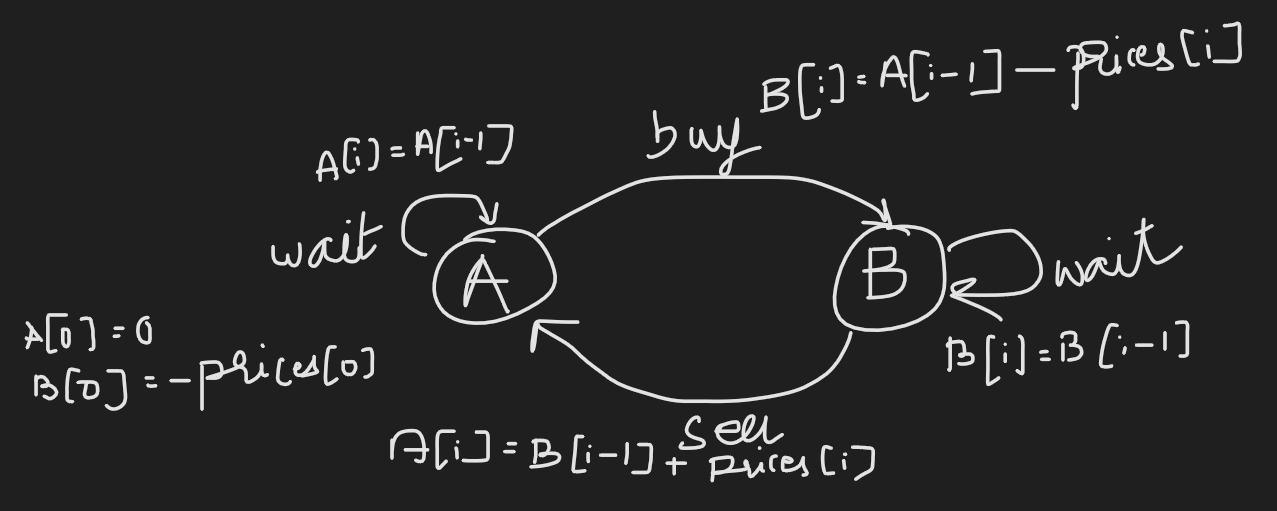 B[i]=A[i-1]-prices[i]
buy
A[i]=A[i-1]
wait
A
B
wait
A[0]=0
B[0]=-prices[0]
B[i]=B[i-1]
sell
A[i]=B[i-1]+prices[i]